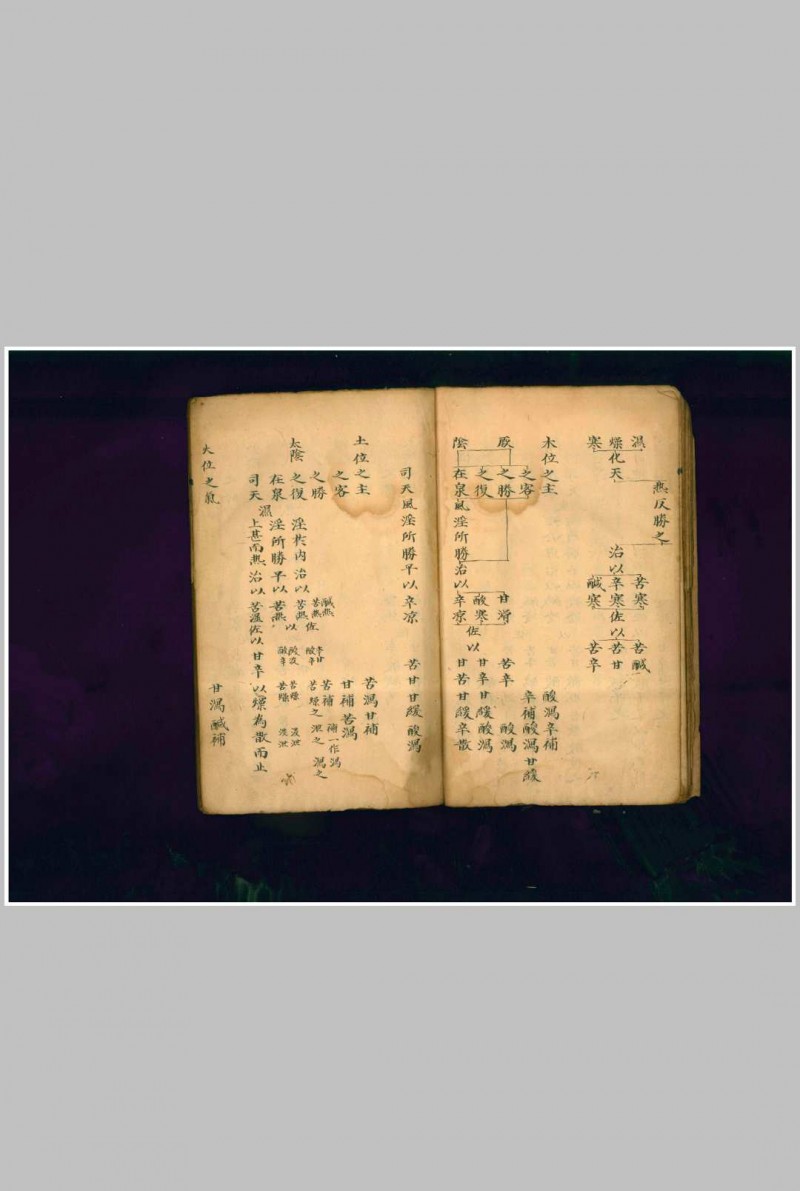 濕 苦寒 苦鹹
熱反勝之
燥化天 治以辛寒佐以苦甘
寒 鹹寒 苦辛
木位之主 酸瀉辛補
之客 辛補酸瀉甘緩
厥 之勝 甘滑 苦辛 酸瀉
之復 酸寒 佐以 甘辛甘緩酸瀉
陰 在泉風淫所勝治以辛涼 甘苦甘緩辛散
司天風淫所勝平以辛涼 苦甘甘緩酸瀉
土位之主 苦瀉甘補
之客 甘補苦瀉
補一作瀉
之勝 鹹熱 苦熱佐以 辛甘 酸辛 苦補 苦燥之 泄之 瀉之
太陰 之復 淫於內治以苦熱
在泉 淫所勝平以苦熱
司天 濕上甚而熱治以苦溫佐以甘辛以燥為散而止
火位之 甘瀉鹹補